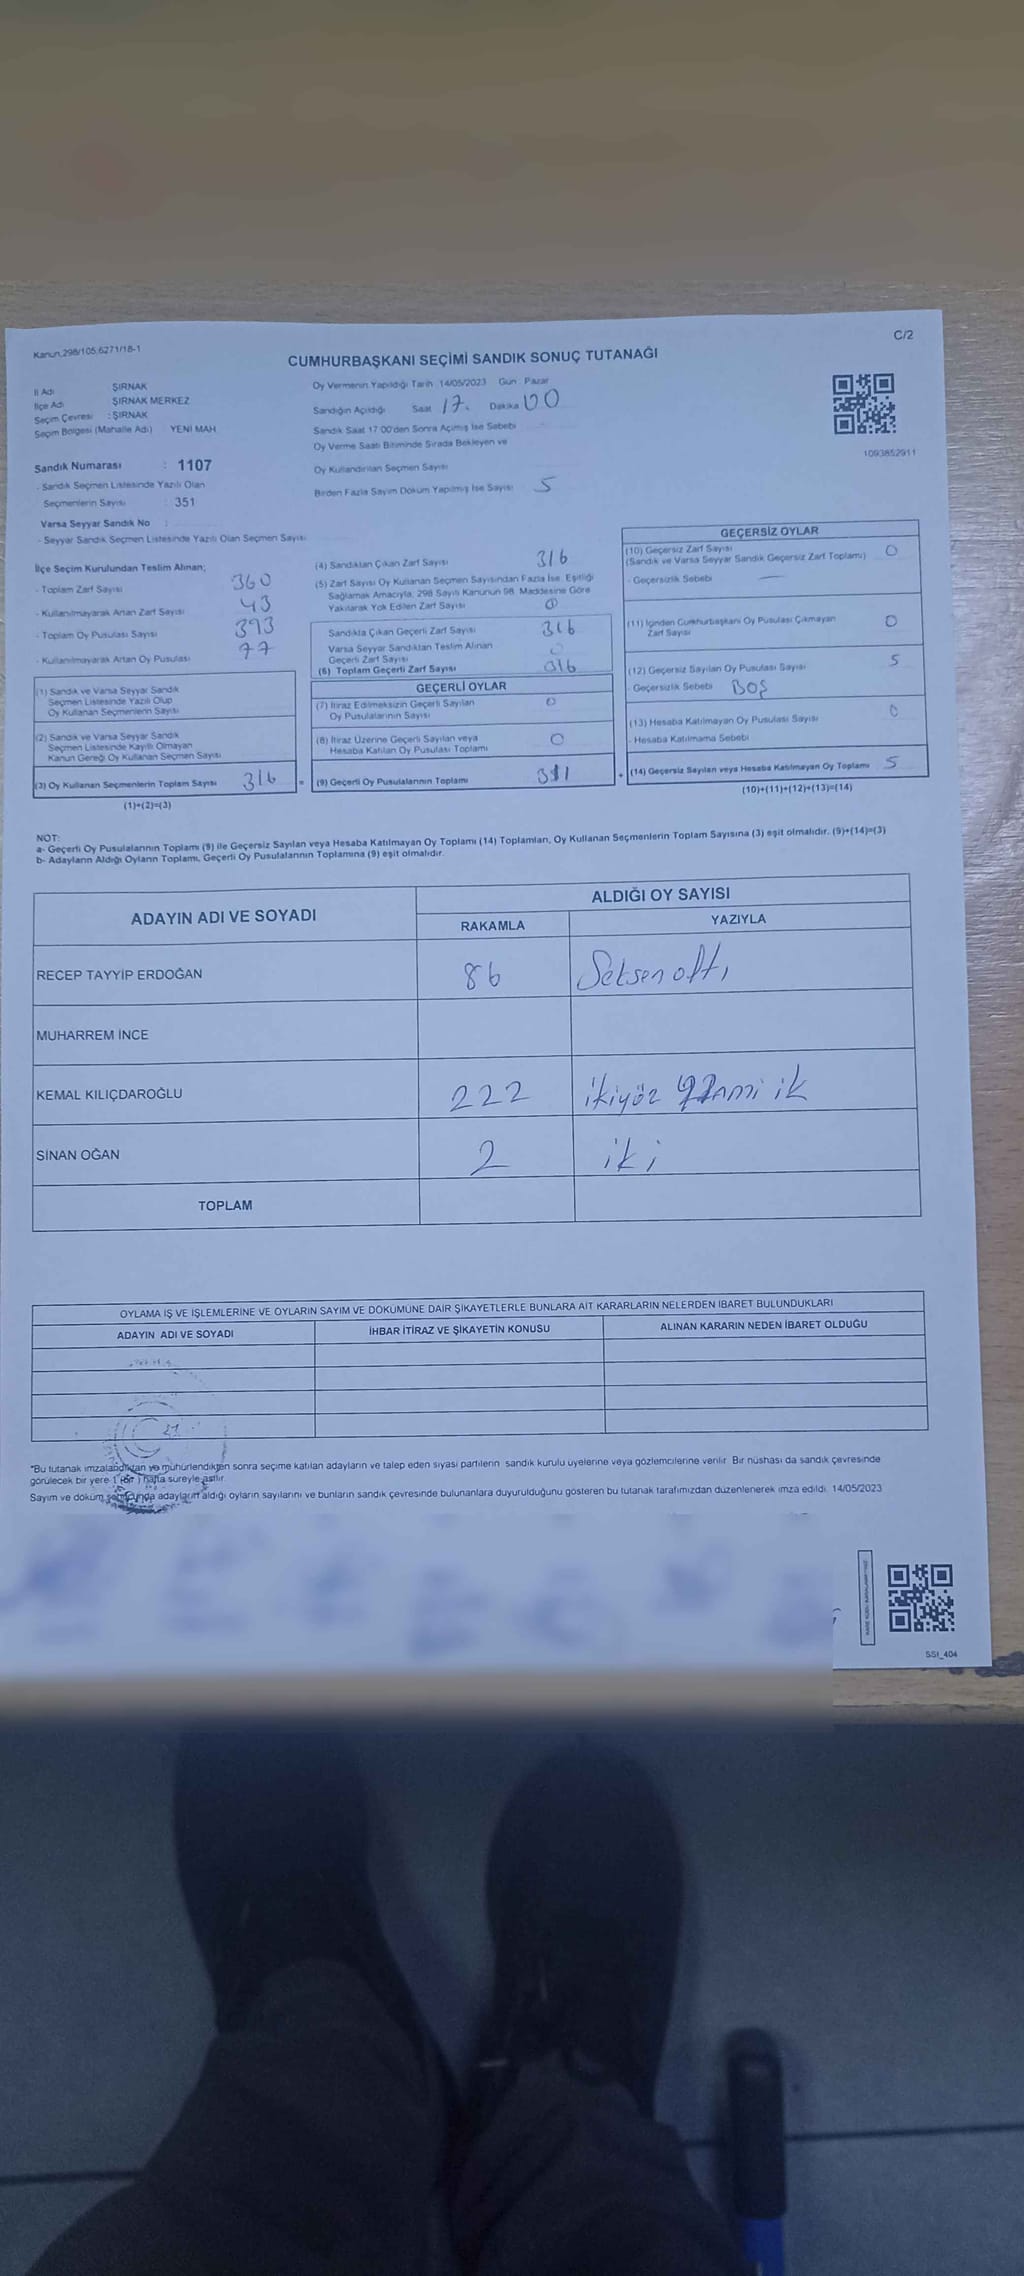 Kanun.298/105,6271/18-1
C/2
CUMHURBAŞKANI SEÇİMİ SANDIK SONUÇ TUTANAĞI
İl Adı ŞIRNAK
İlçe Adı ŞIRNAK MERKEZ
Seçim Çevresi : ŞIRNAK
Seçim Bölgesi (Mahalle Adı) YENİ MAH.
Sandık Numarası : 1107
- Sandık Seçmen Listesinde Yazılı Olan
Seçmenlerin Sayısı : 351
Varsa Seyyar Sandık No :
- Seyyar Sandık Seçmen Listesinde Yazılı Olan Seçmen Sayısı
Oy Vermenin Yapıldığı Tarih 14/05/2023 Gün : Pazar
Sandığın Açıldığı Saat 17. Dakika 00
Sandık Saat 17:00'den Sonra Açılmış İse Sebebi
Oy Verme Saati Bitiminde Sırada Bekleyen ve
Oy Kullandırılan Seçmen Sayısı
Birden Fazla Sayım Döküm Yapılmış İse Sayısı 5
1093852911
İlçe Seçim Kurulundan Teslim Alınan;
- Toplam Zarf Sayısı 360
- Kullanılmayarak Artan Zarf Sayısı 43
- Toplam Oy Pusulası Sayısı 393
- Kullanılmayarak Artan Oy Pusulası 77
(1) Sandık ve Varsa Seyyar Sandık
Seçmen Listesinde Yazılı Olup
Oy Kullanan Seçmenlerin Sayısı
(2) Sandık ve Varsa Seyyar Sandık
Seçmen Listesinde Kayıtlı Olmayan
Kanun Gereği Oy Kullanan Seçmen Sayısı
(3) Oy Kullanan Seçmenlerin Toplam Sayısı 316 =
(1)+(2)=(3)
(4) Sandıktan Çıkan Zarf Sayısı 316
(5) Zarf Sayısı Oy Kullanan Seçmen Sayısından Fazla İse, Eşitliği
Sağlamak Amacıyla, 298 Sayılı Kanunun 98. Maddesine Göre
Yakılarak Yok Edilen Zarf Sayısı 0
Sandıkta Çıkan Geçerli Zarf Sayısı 316
Varsa Seyyar Sandıktan Teslim Alınan
Geçerli Zarf Sayısı 0
(6) Toplam Geçerli Zarf Sayısı 316
GEÇERLİ OYLAR
(7) İtiraz Edilmeksizin Geçerli Sayılan
Oy Pusulalarının Sayısı 0
(8) İtiraz Üzerine Geçerli Sayılan veya
Hesaba Katılan Oy Pusulası Toplamı 0
(9) Geçerli Oy Pusulalarının Toplamı 311 +
GEÇERSİZ OYLAR
(10) Geçersiz Zarf Sayısı
(Sandık ve Varsa Seyyar Sandık Geçersiz Zarf Toplamı) 0
- Geçersizlik Sebebi —
(11) İçinden Cumhurbaşkanı Oy Pusulası Çıkmayan
Zarf Sayısı 0
(12) Geçersiz Sayılan Oy Pusulası Sayısı 5
- Geçersizlik Sebebi BOŞ
(13) Hesaba Katılmayan Oy Pusulası Sayısı 0
- Hesaba Katılmama Sebebi
(14) Geçersiz Sayılan veya Hesaba Katılmayan Oy Toplamı 5
(10)+(11)+(12)+(13)=(14)
NOT:
a- Geçerli Oy Pusulalarının Toplamı (9) ile Geçersiz Sayılan veya Hesaba Katılmayan Oy Toplamı (14) Toplamları, Oy Kullanan Seçmenlerin Toplam Sayısına (3) eşit olmalıdır. (9)+(14)=(3)
b- Adayların Aldığı Oyların Toplamı, Geçerli Oy Pusulalarının Toplamına (9) eşit olmalıdır.
ADAYIN ADI VE SOYADI
ALDIĞI OY SAYISI
RAKAMLA YAZIYLA
RECEP TAYYİP ERDOĞAN 86 Seksen altı
MUHARREM İNCE
KEMAL KILIÇDAROĞLU 222 ikiyöz ik
SİNAN OĞAN 2 iki
TOPLAM
OYLAMA İŞ VE İŞLEMLERİNE VE OYLARIN SAYIM VE DÖKÜMÜNE DAİR ŞİKAYETLERLE BUNLARA AİT KARARLARIN NELERDEN İBARET BULUNDUKLARI
ADAYIN ADI VE SOYADI İHBAR İTİRAZ VE ŞİKAYETİN KONUSU ALINAN KARARIN NEDEN İBARET OLDUĞU
*Bu tutanak imzalandıktan ve mühürlendikten sonra seçime katılan adayların ve talep eden siyasi partilerin sandık kurulu üyelerine veya gözlemcilerine verilir. Bir nüshası da sandık çevresinde
görülecek bir yere 1 (bir) hafta süreyle asılır.
Sayım ve döküm sonucunda adayların aldığı oyların sayılarını ve bunların sandık çevresinde bulunanlara duyurulduğunu gösteren bu tutanak tarafımızdan düzenlenerek imza edildi. 14/05/2023
SSI_404